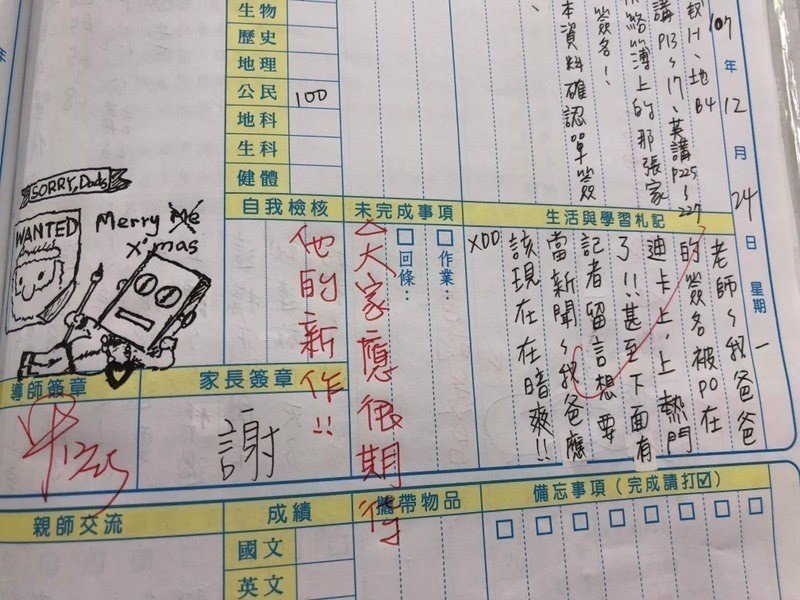 107年12月24日 星期一
數H、地B4
講P13~17、英講P25~27
絡簿上的那張家
簽名!
本資料確認單簽
生物
歷史
地理
公民 100
地科
生科
健體
生活與學習札記
老師~我爸爸
的簽名被PO在
迪卡上,上熱門
了!!甚至下面有
記者留言想要
當新聞~我爸應
該現在在暗爽!!
XDD
未完成事項
□作業:
□回條:
自我檢核
大家應很期待
他的新作!!
SORRY, Dad
WANTED
Merry Me
X'mas
導師簽章
12/25
家長簽章
謝
備忘事項(完成請打☑)
攜帶物品
成績
國文
英文
親師交流